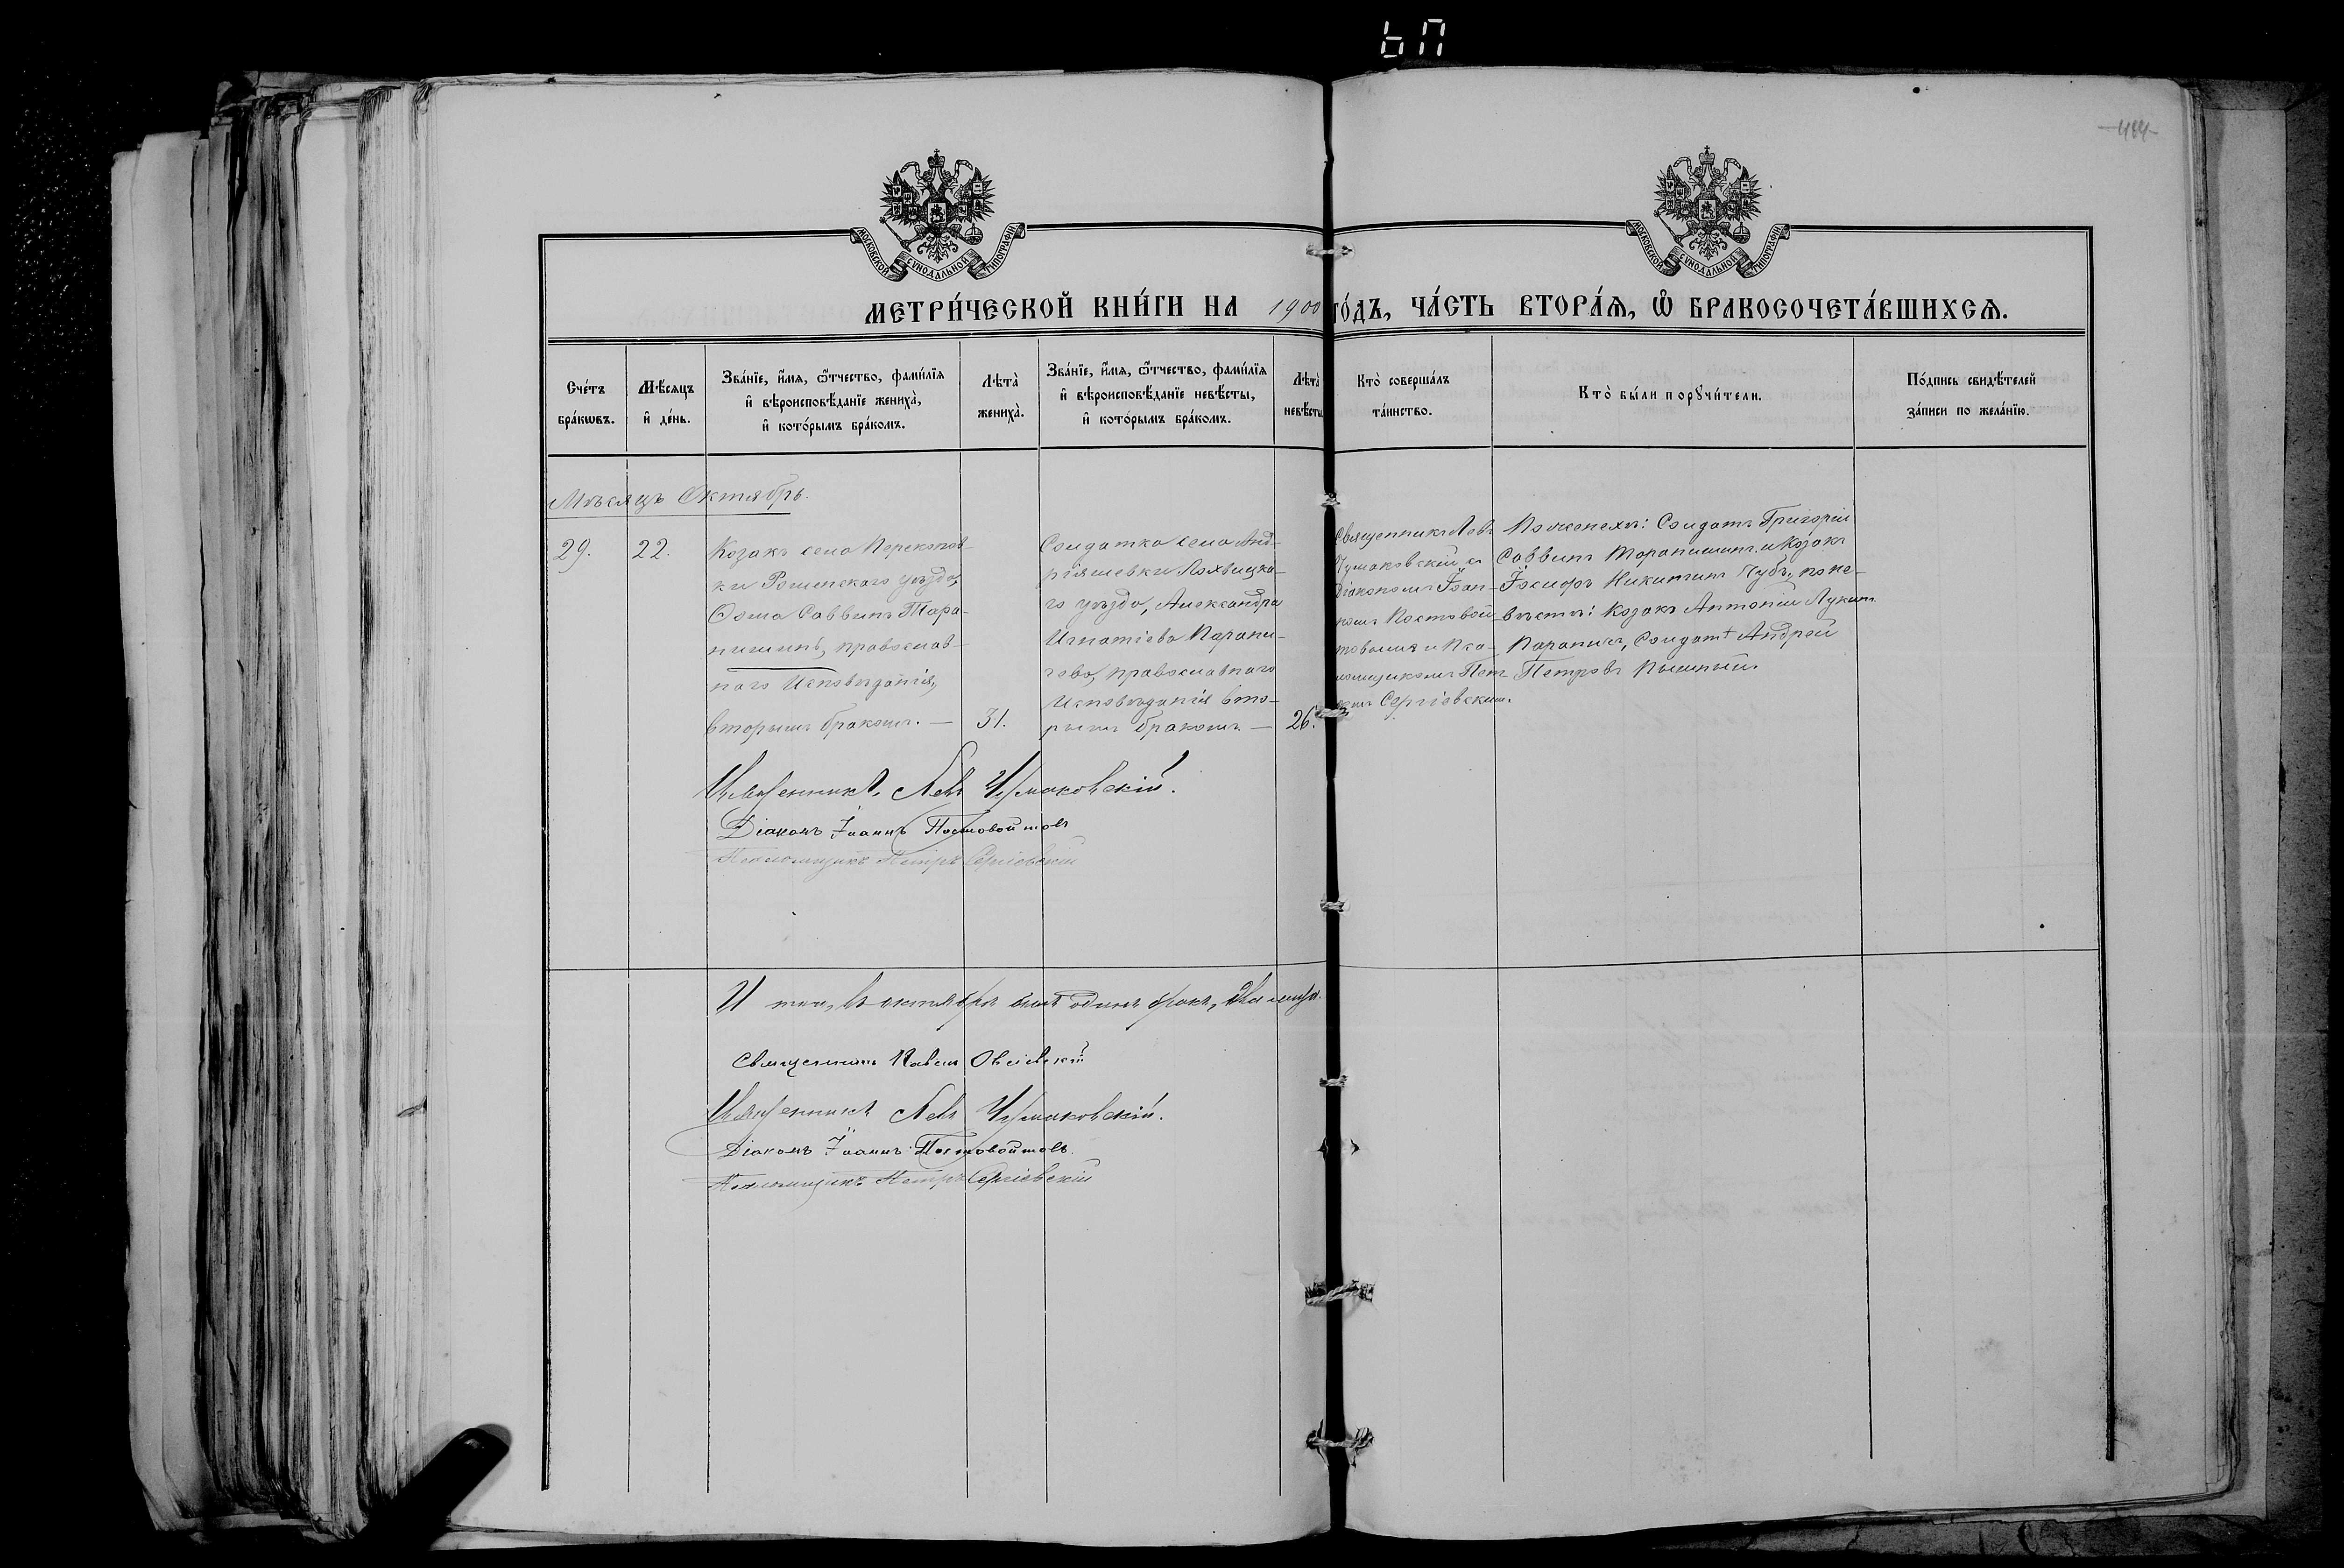 -484-
МОСКОВСКОЙ СУНОДАЛЬНОЙ ТИПОГРАФІИ
МОСКОВСКОЙ СУНОДАЛЬНОЙ ТИПОГРАФІИ
МЕТРИ́ЧЕСКОЙ КНИ́ГИ НА 1900 ГО́ДЪ, ЧА́СТЬ ВТОРА́Я, Ѽ БРАКОСОЧЕТА́ВШИХСЯ.
Сче́тъ
бра́кѡвъ.
Мѣ́сяцъ
и҆ де́нь.
Зва́нїе, и҆́мя, ѻ҆́тчество, фами́лїя
и҆ вѣроисповѣ́данїе жениха̀,
и҆ кото́рымъ бра́комъ.
Лѣта̀
жениха̀.
Зва́нїе, и҆́мя, ѻ҆́тчество, фами́лїя
и҆ вѣроисповѣ́данїе невѣ́сты,
и҆ кото́рымъ бра́комъ.
Лѣта̀
невѣ́сты
Кто̀ соверша́лъ
та́инство.
Кто̀ бы́ли порꙋчи́тели.
По́дпись свидѣ́телей
за́писи по жела́нїю.
Мѣсяцъ Октябрь.
29.
22.
Козакъ села Перекопов-
ки Роменскаго уѣзда,
Ѳома Саввинъ Тара-
пишинъ, православ-
наго Исповѣданія,
вторымъ бракомъ. —
31.
Солдатка села Анд-
ріяшевки Лохвицка-
го уѣзда, Александра
Игнатіева Парани-
чева, православнаго
Исповѣданія вто-
рымъ бракомъ —
26.
Священникъ Левъ
Чумаковскій съ
Діакономъ Іоан-
номъ Постовой-
товымъ и Пса-
ломщикомъ Пет-
ромъ Сергіевскимъ.
По женихѣ: Солдатъ Григорій
Саввинъ Тарапишинъ и Козакъ
Іосифъ Никитинъ Чубъ, по не-
вѣстѣ: Козакъ Антоній Лукинъ
Параничъ, Солдатъ Андрей
Петровъ Пышный.
Священникъ Левъ Чумаковскій.
Діаконъ Іоаннъ Постовойтовъ
Псаломщикъ Петръ Сергіевскій
И того, въ октябрѣ былъ одинъ бракъ, два лица.
Священникъ Павелъ Овсіевскій
Священникъ Левъ Чумаковскій.
Діаконъ Іоаннъ Постовойтовъ.
Псаломщикъ Петръ Сергіевскій